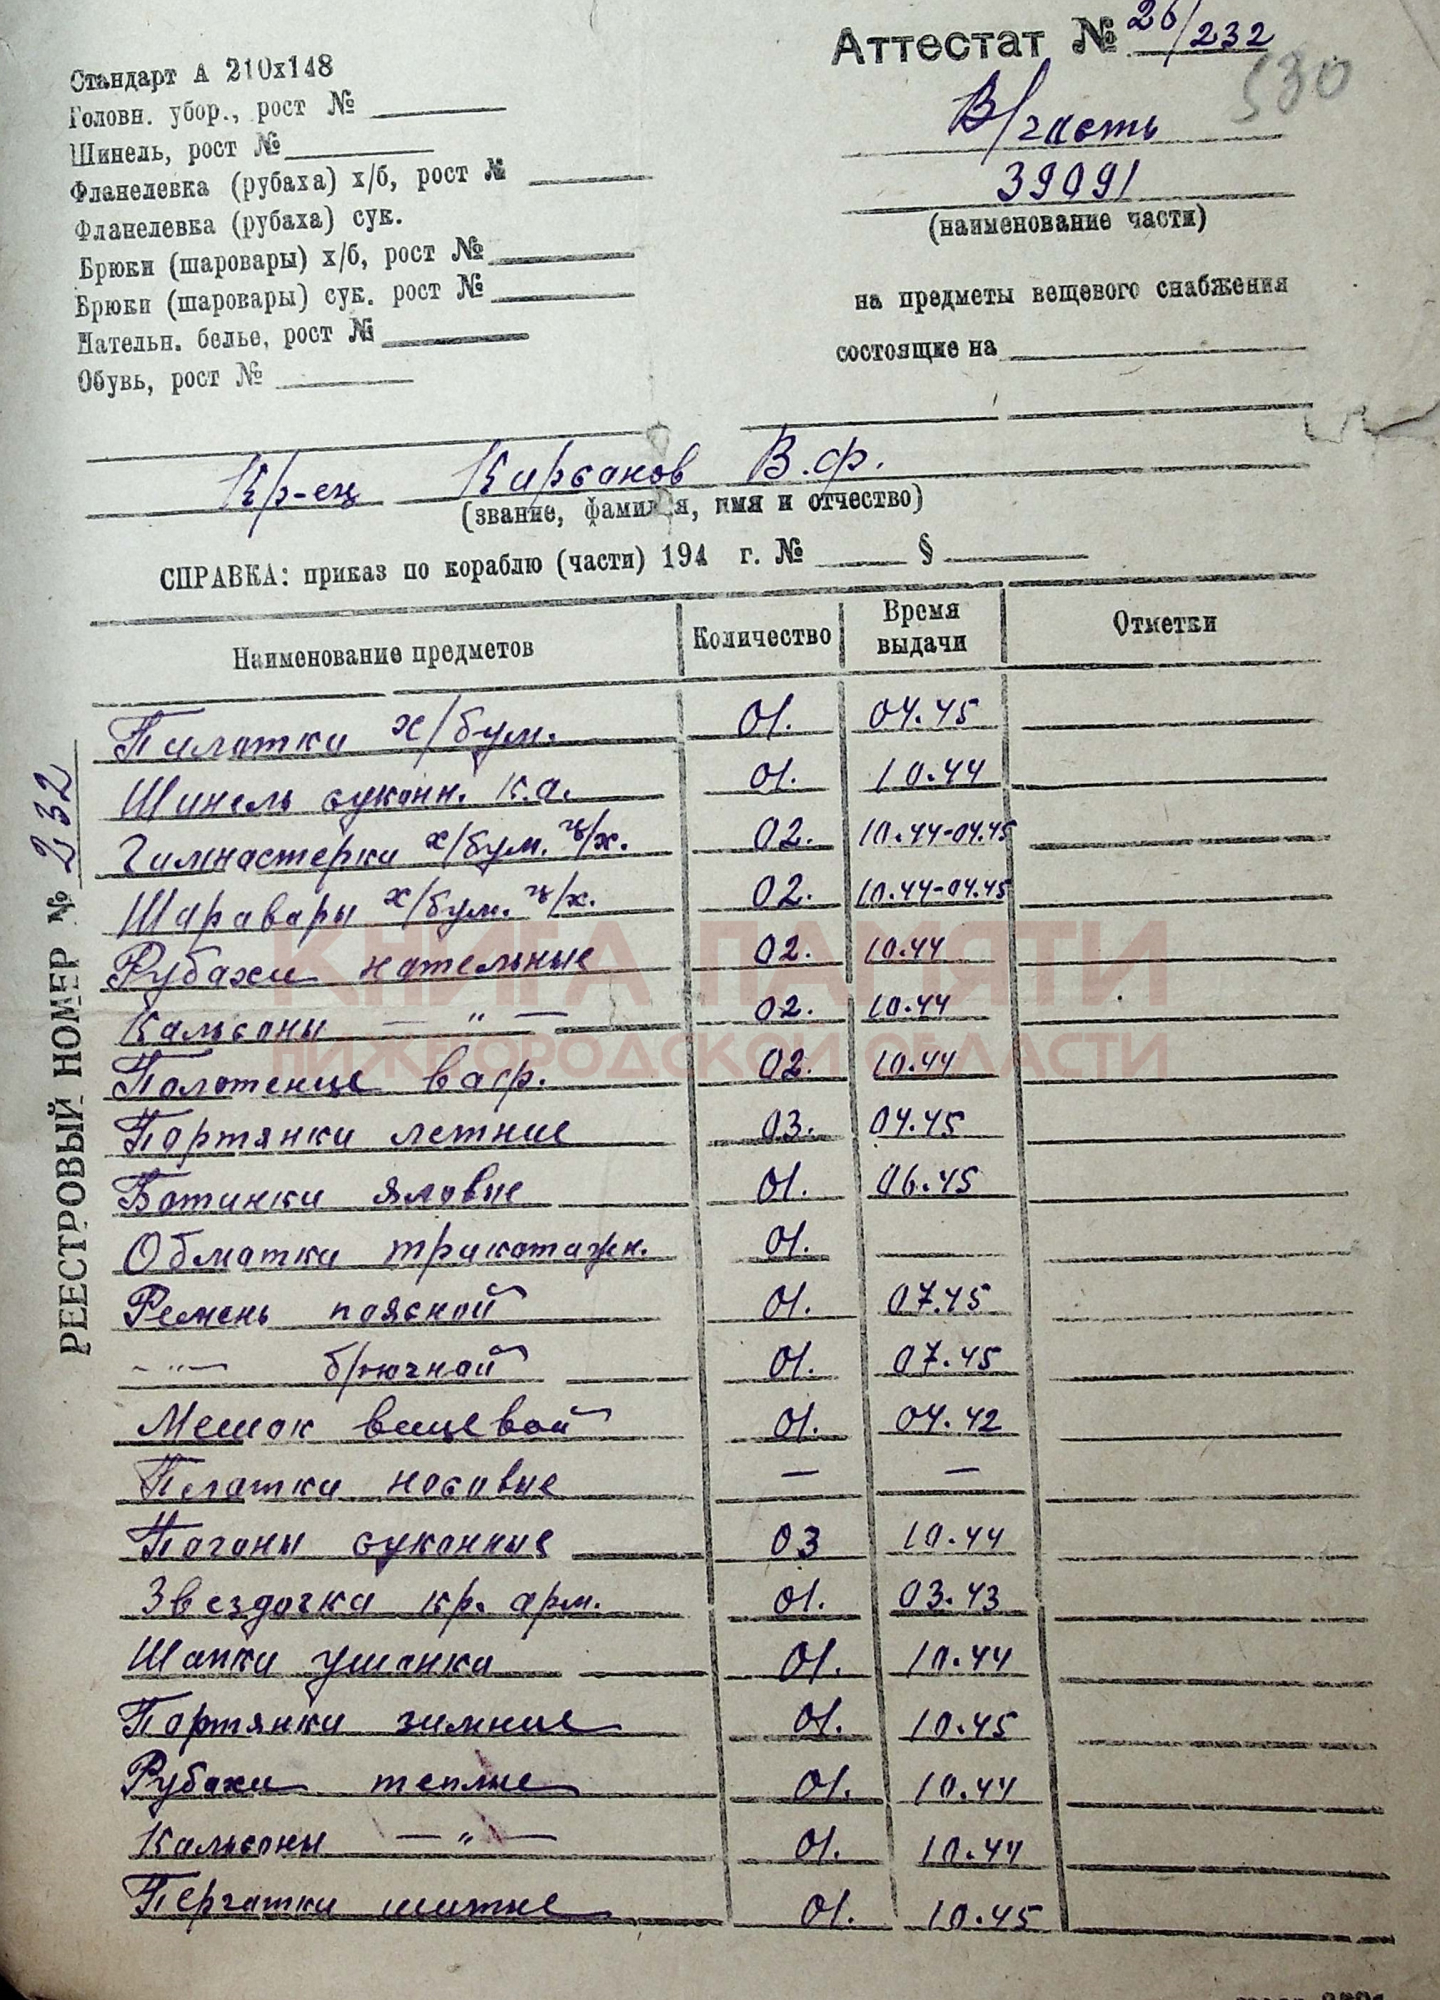 Аттестат № 26/232
530
Стандарт А 210х148
Головн. убор., рост №
Шинель, рост №
Фланелевка (рубаха) х/б, рост №
Фланелевка (рубаха) сук.
Брюки (шаровары) х/б, рост №
Брюки (шаровары) сук. рост №
Нательн. белье, рост №
Обувь, рост №
В/часть
39091
(наименование части)
на предметы вещевого снабжения
состоящие на
Кр-ец Кирсанов В.Ф.
(звание, фамилия, имя и отчество)
СПРАВКА: приказ по кораблю (части) 194 г. № §
Наименование предметов Количество Время выдачи Отметки
Пилотки х/бум. 01. 04.45
Шинель суконн. к.а. 01. 10.44
Гимнастерки х/бум. ч/х. 02. 10.44-04.45
Шаравары х/бум. ч/х. 02. 10.44-04.45
Рубахи нательные 02. 10.44
Кальсоны — " — 02. 10.44
Полотенце ваф. 02. 10.44
Портянки летние 03. 04.45
Ботинки яловые 01. 06.45
Обмотки трикотажн. 01. —
Ремень поясной 01. 07.45
— " — брючной 01. 07.45
Мешок вещевой 01. 04.42
Платки носовые — —
Погоны суконные 03 10.44
Звездочка кр. арм. 01. 03.43
Шапки ушанки 01. 10.44
Портянки зимние 01. 10.45
Рубахи теплые 01. 10.44
Кальсоны — " — 01. 10.44
Перчатки шитые 01. 10.45
РЕЕСТРОВЫЙ НОМЕР № 232
КНИГА ПАМЯТИ
НИЖЕГОРОДСКОЙ ОБЛАСТИ